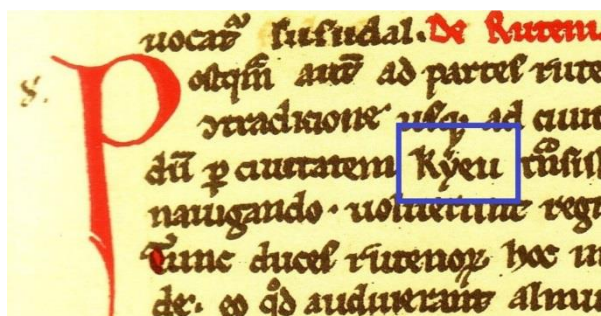 uocat᷑ ſuſudal. De Rutem
8.
Poſtqm̄ aut̄ ad parteſ rute
uſqꝫ ad ciuit
dū ꝑ ciuitatem Kyeu
nauigando · uoluerunt regi
Tunc duceſ rutenoꝝ hoc in
de · eo qd̄ audierant almu